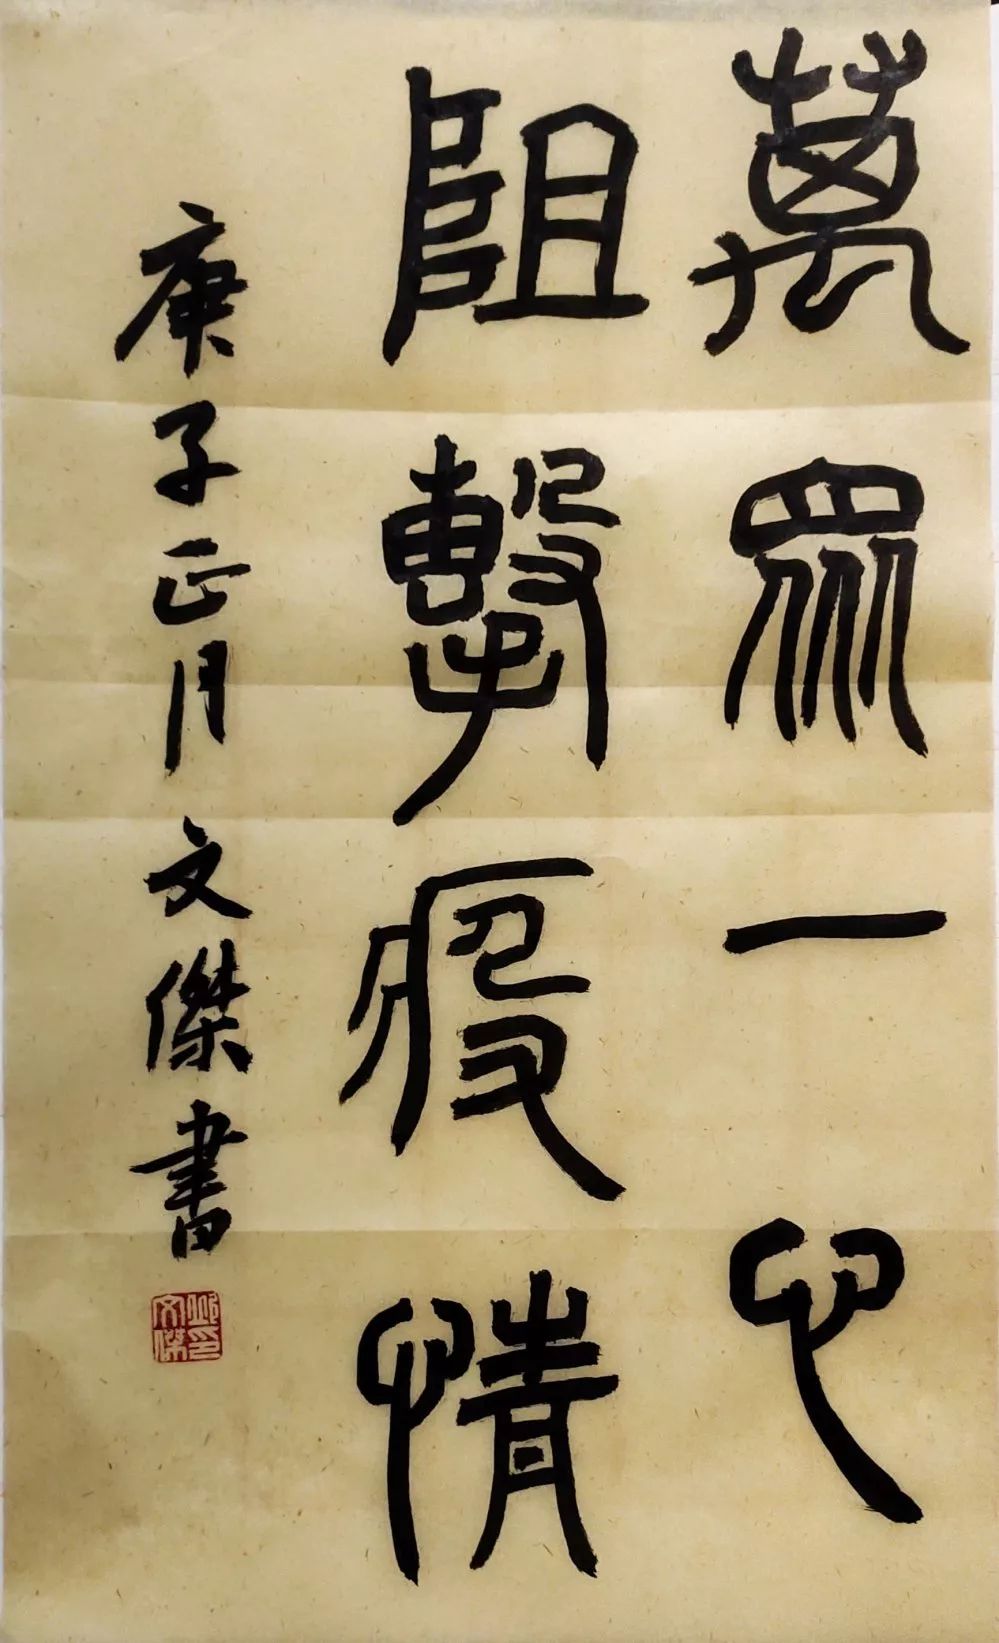 萬眾一心
阻擊疫情
庚子正月文傑書